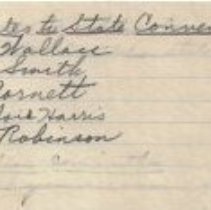 to State Conve
Wallace
Smith
Cornett
Harris
Robinson